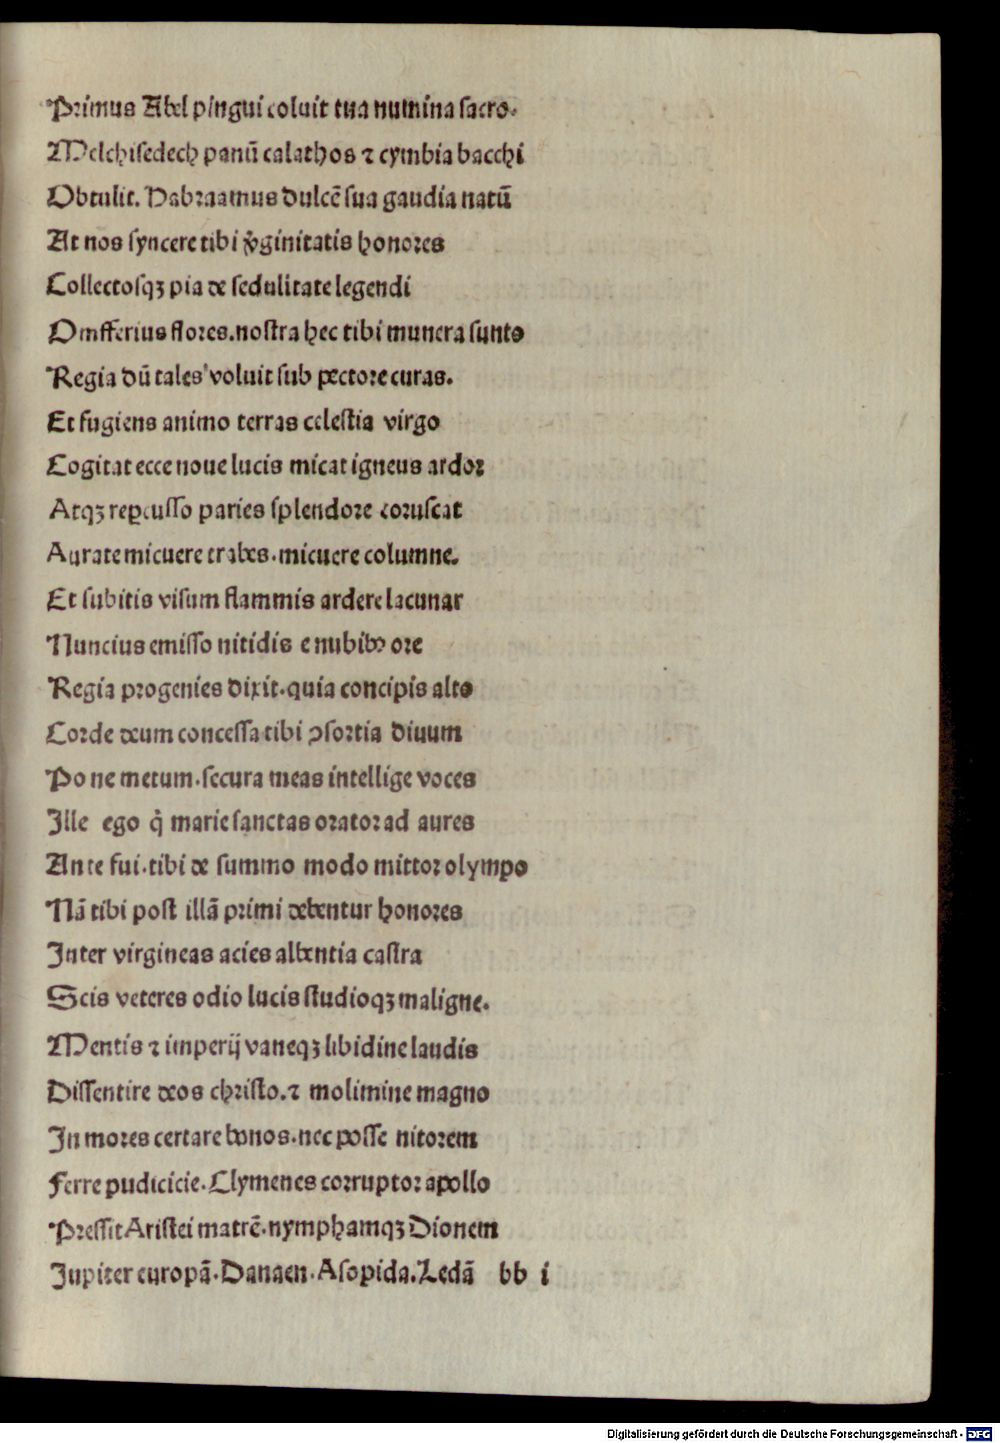 Primus Abel pingui coluit tua numina sacro.
Melchisedech panū calathos ⁊ cymbia bacchi
Obtulit. Habraamus dulcē sua gaudia natū
At nos syncere tibi v̓ginitatis honores
Collectosqꝫ pia de sedulitate legendi
Omfferius flores. nostra hec tibi munera sunto
Regia dū tales voluit sub pectore curas.
Et fugiens animo terras celestia virgo
Cogitat ecce noue lucis micat igneus ardor
Atqꝫ reꝑcusso paries splendore coruscat
Aurate micuere trabes. micuere columne.
Et subitis visum flammis ardere lacunar
Nuncius emisso nitidis e nubibꝰ ore
Regia progenies dixit. quia concipis alto
Corde deum concessa tibi ꝯsortia diuum
Po ne metum. secura meas intellige voces
Ille ego q̇ marie sanctas orator ad aures
Ante fui. tibi de summo modo mittor olympo
Nā tibi post illā primi debentur honores
Inter virgineas acies albentia castra
Scis veteres odio lucis studioqꝫ maligne.
Mentis ⁊ imperij vaneqꝫ libidine laudis
Dissentire deos christo. ⁊ molimine magno
In mores certare bonos. nec posse nitorem
Ferre pudicicie. Clymenes corruptor apollo
Pressit Aristei matrē. nymphamqꝫ Dionem
Jupiter europā. Danaen. Asopida. Ledā bb i
Digitalisierung gefördert durch die Deutsche Forschungsgemeinschaft - DFG